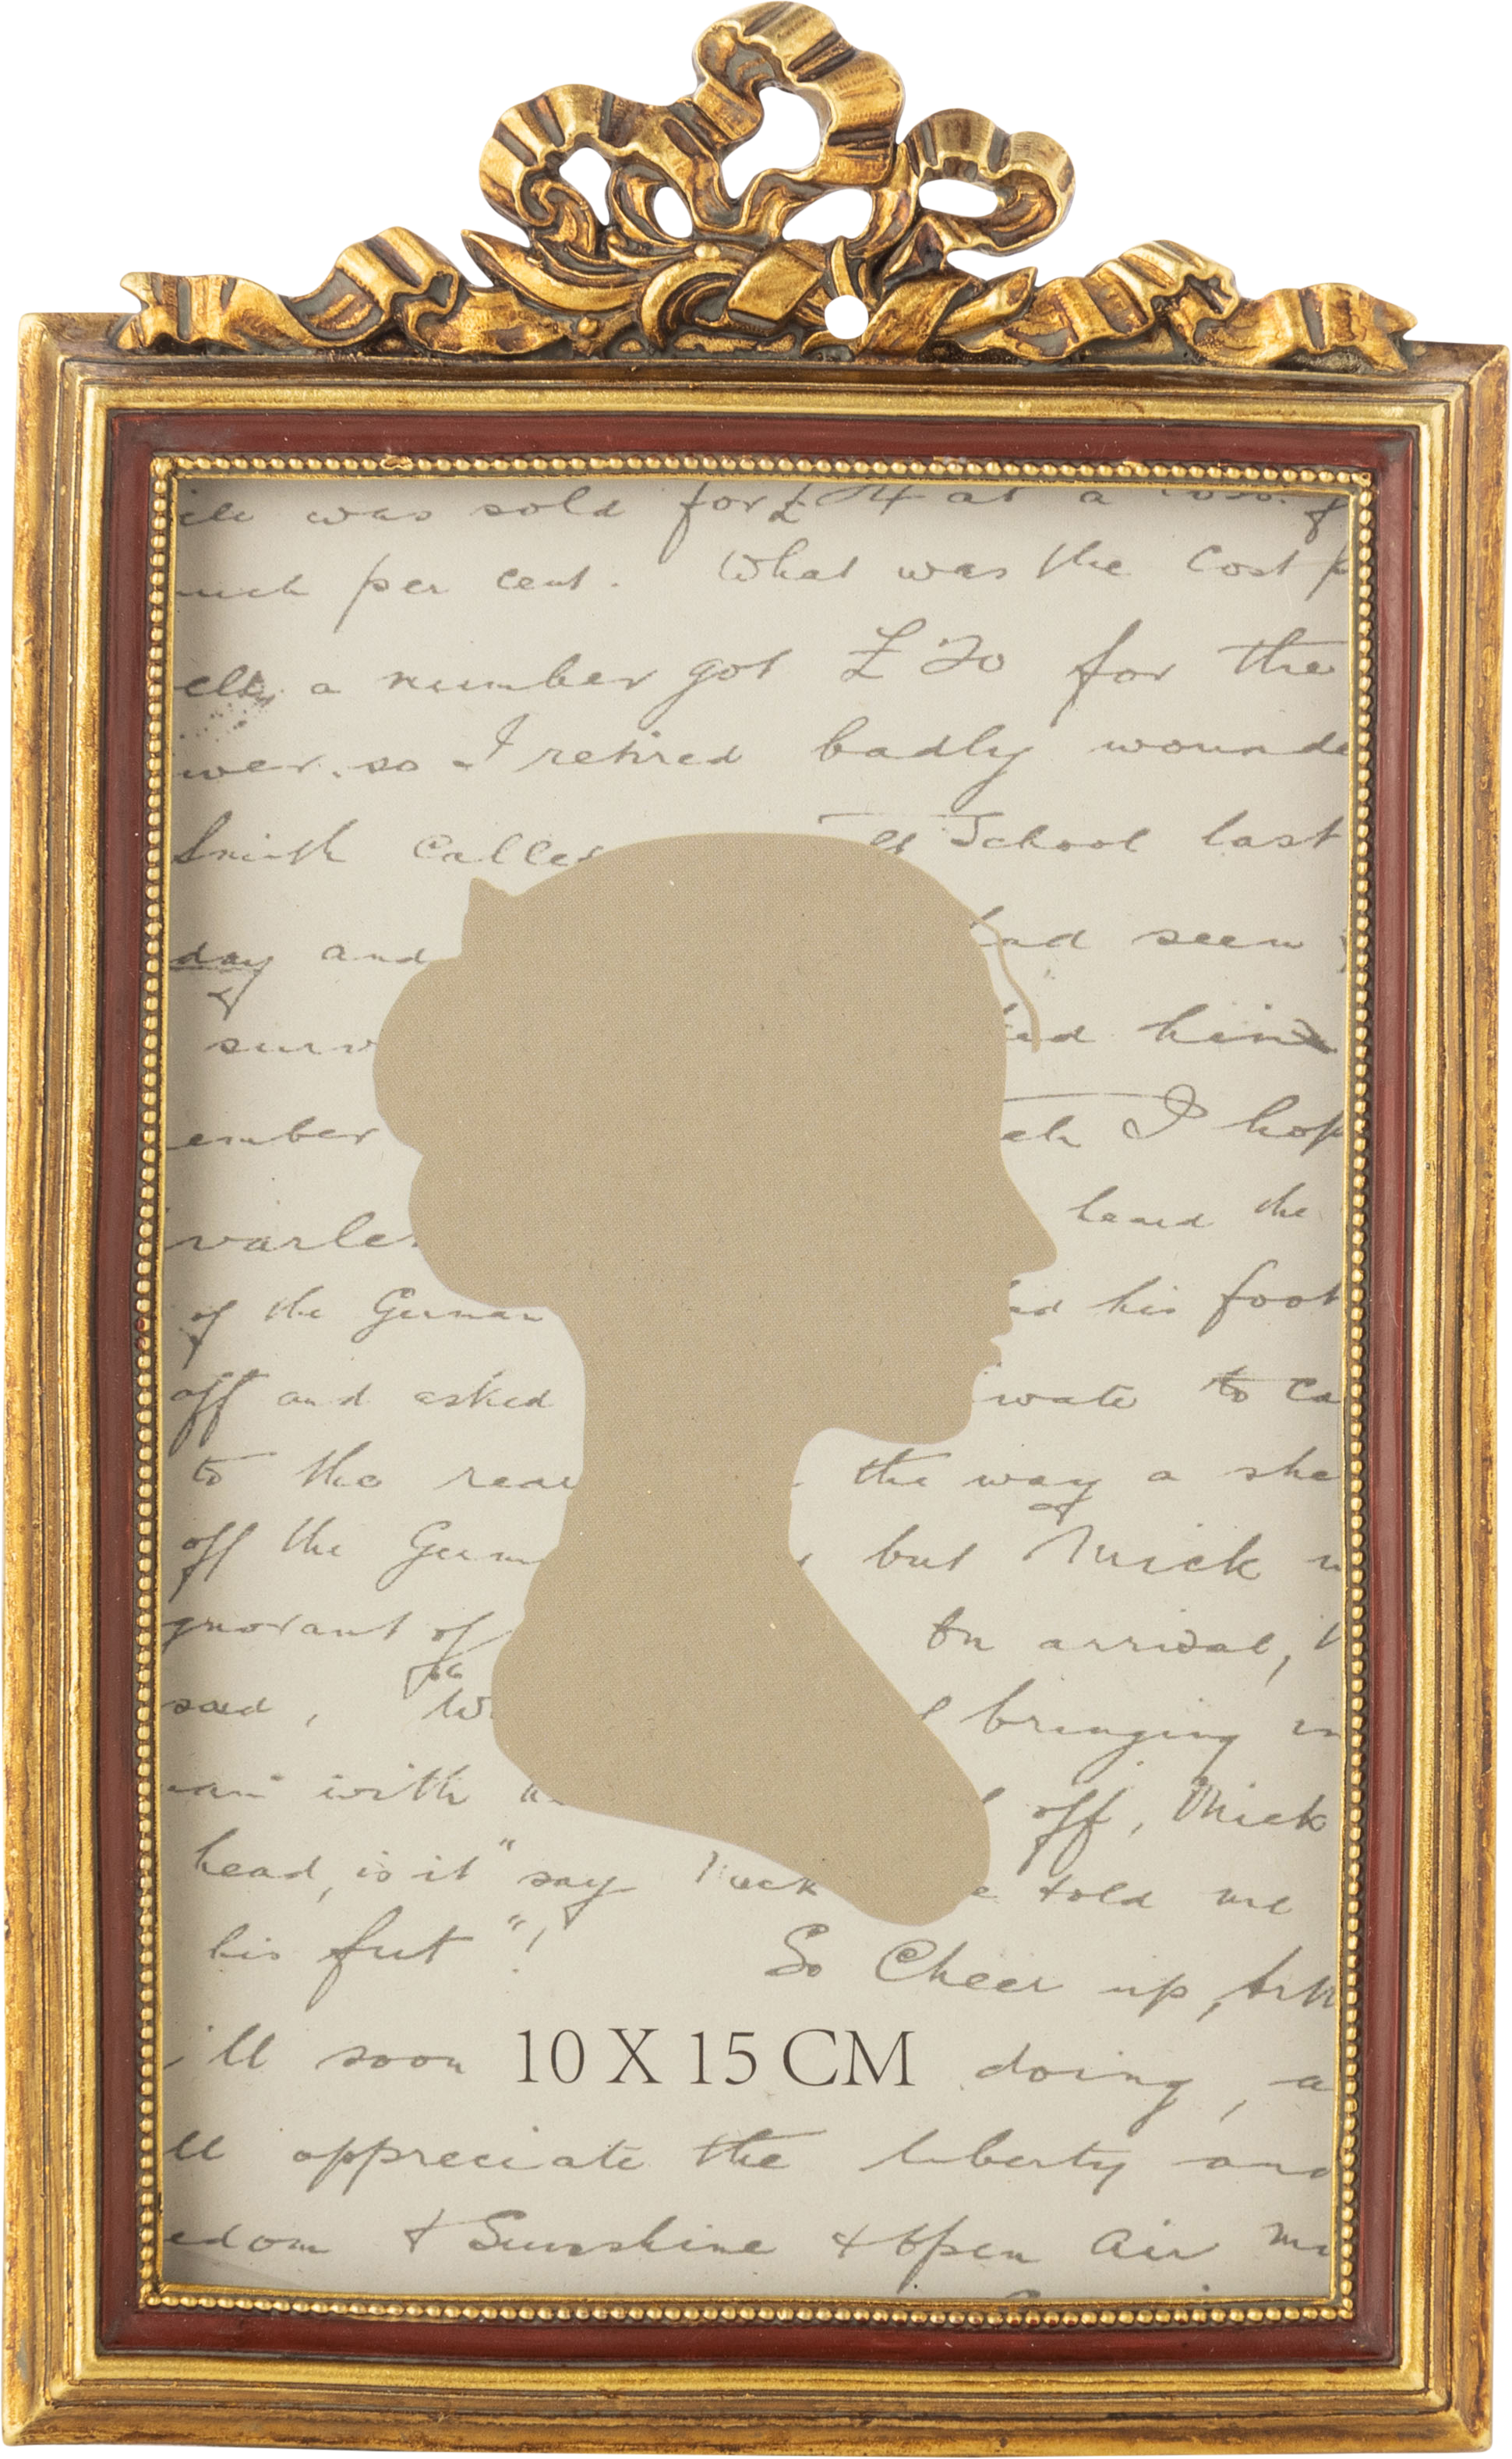 was sold for £ 14 at a
per cent. What was the Cost
a number got £20 for the
so I retired badly wounde
Smith Called School last
day and had seen
surv ked him
ember ch I hop
varle heard the
of the German ed his foot
off and asked ivate to Ca
to the rear the way a she
off the Germ but Mick
gnorant of On arrival,
said, W bringing in
with off, Mick
head, is it" say told me
his feet"! So Cheer up,
ill soon doing, a
10 X 15 CM
ll appreciate the liberty and
edom & Sunshine & Open Air